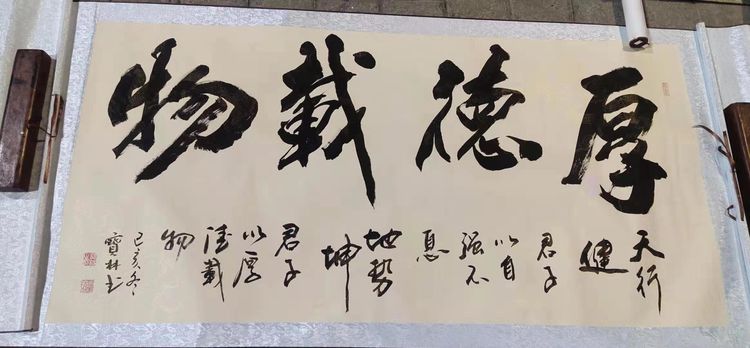 厚德載物
天行
健
君子
以自
强不
息
地勢
坤
君子
以厚
德載
物
己亥冬
寶林书